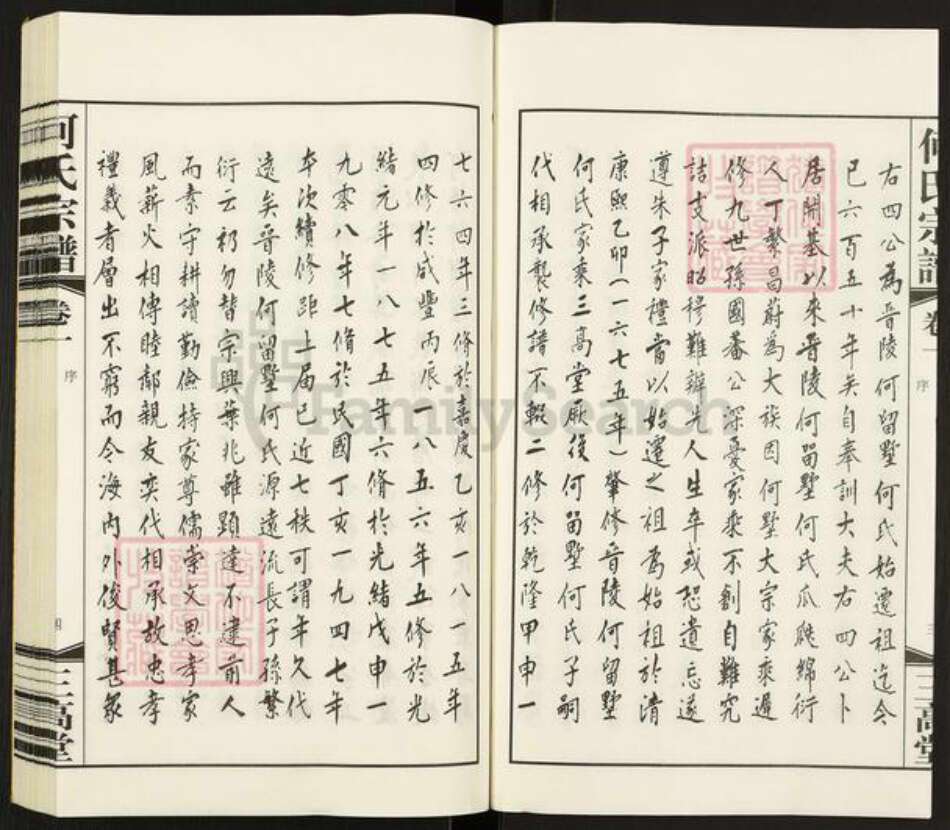 何氏宗譜
卷一
序
三
三高堂
右四公為晉陵何留墅何氏始遷祖迄今
已六百五十年矣自奉訓大夫右四公卜
居開基以來晉陵何留墅何氏瓜瓞綿衍
人丁繁昌蔚為大族因何墅大宗家乘遲
修九世孫國蕃公深憂家乘不創自難究
詰支派昭穆難辨先人生卒或恐遺忘遂
遵朱子家禮當以始遷之祖為始祖於清
康熙乙卯(一六七五年)肇修晉陵何留墅
何氏家乘三高堂厥後何留墅何氏子嗣
代相承襲修譜不輟二修於乾隆甲申一
七六四年三修於嘉慶乙亥一八一五年
四修於咸豐丙辰一八五六年五修於光
緒元年一八七五年六脩於光緒戊申一
九零八年七脩於民國丁亥一九四七年
本次續修距上屆已近七秩可謂年久代
遠矣晉陵何留墅何氏源遠流長子孫繁
衍云礽勿替宗興葉兆雖顯達不逮前人
而素守耕讀勤儉持家尊儒崇文思孝家
風薪火相傳睦鄰親友奕代相承故忠孝
禮義者層出不窮而今海內外俊賢甚眾
何氏宗譜
卷一
序
四
三高堂
FamilySearch